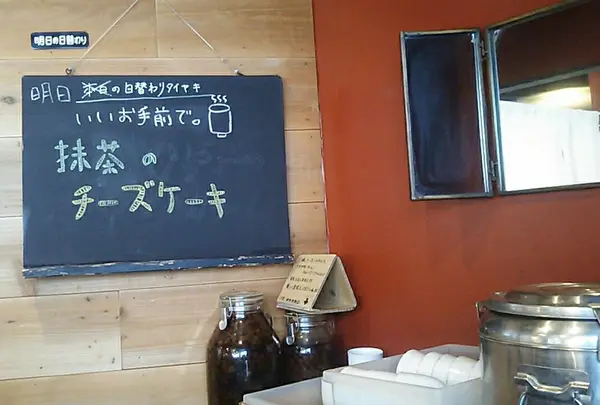 明日の日替わり
明日 本日の日替わりタイヤキ
いいお手前で。
抹茶の
チーズケーキ